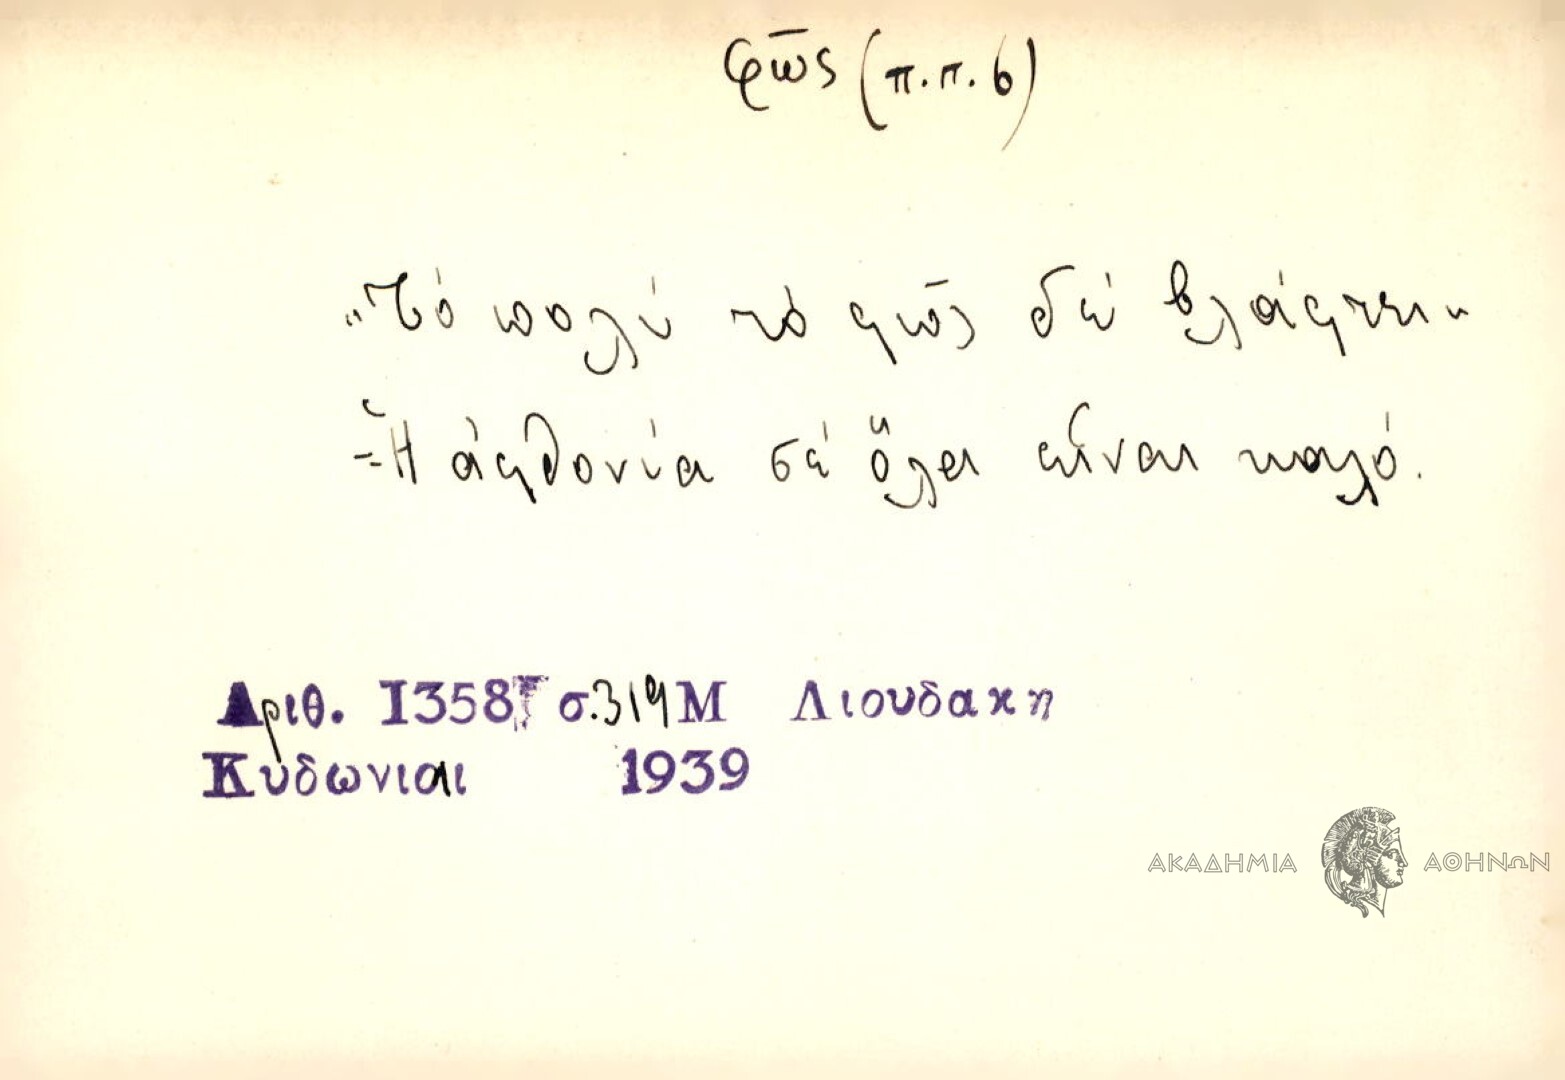 φῶς (π.π. 6)
„Τό πολύ τό φῶς δέ βλάφτει"
=Ἡ ἀφθονία σέ ὅλα εἶναι καλό.
Αριθ. 1358 σ.319 Μ Λιουδακη
Κυδωνιαι 1939
ΑΚΑΔΗΜΙΑ ΑΘΗΝΩΝ